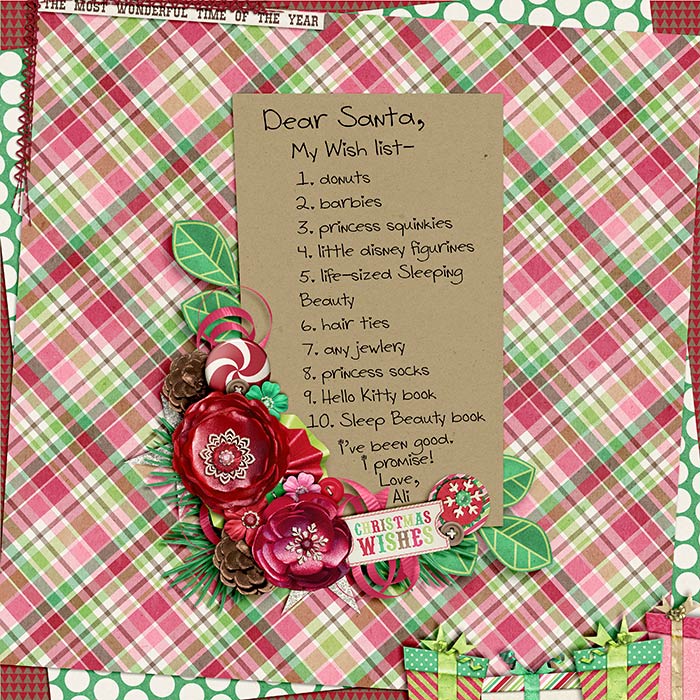 THE MOST WONDERFUL TIME OF THE YEAR
Dear Santa,
My Wish list-
1. donuts
2. barbies
3. princess squinkies
4. little disney figurines
5. life-sized Sleeping
Beauty
6. hair ties
7. any jewlery
8. princess socks
9. Hello Kitty book
10. Sleep Beauty book
i've been good.
i promise!
Love,
Ali
CHRISTMAS
WISHES